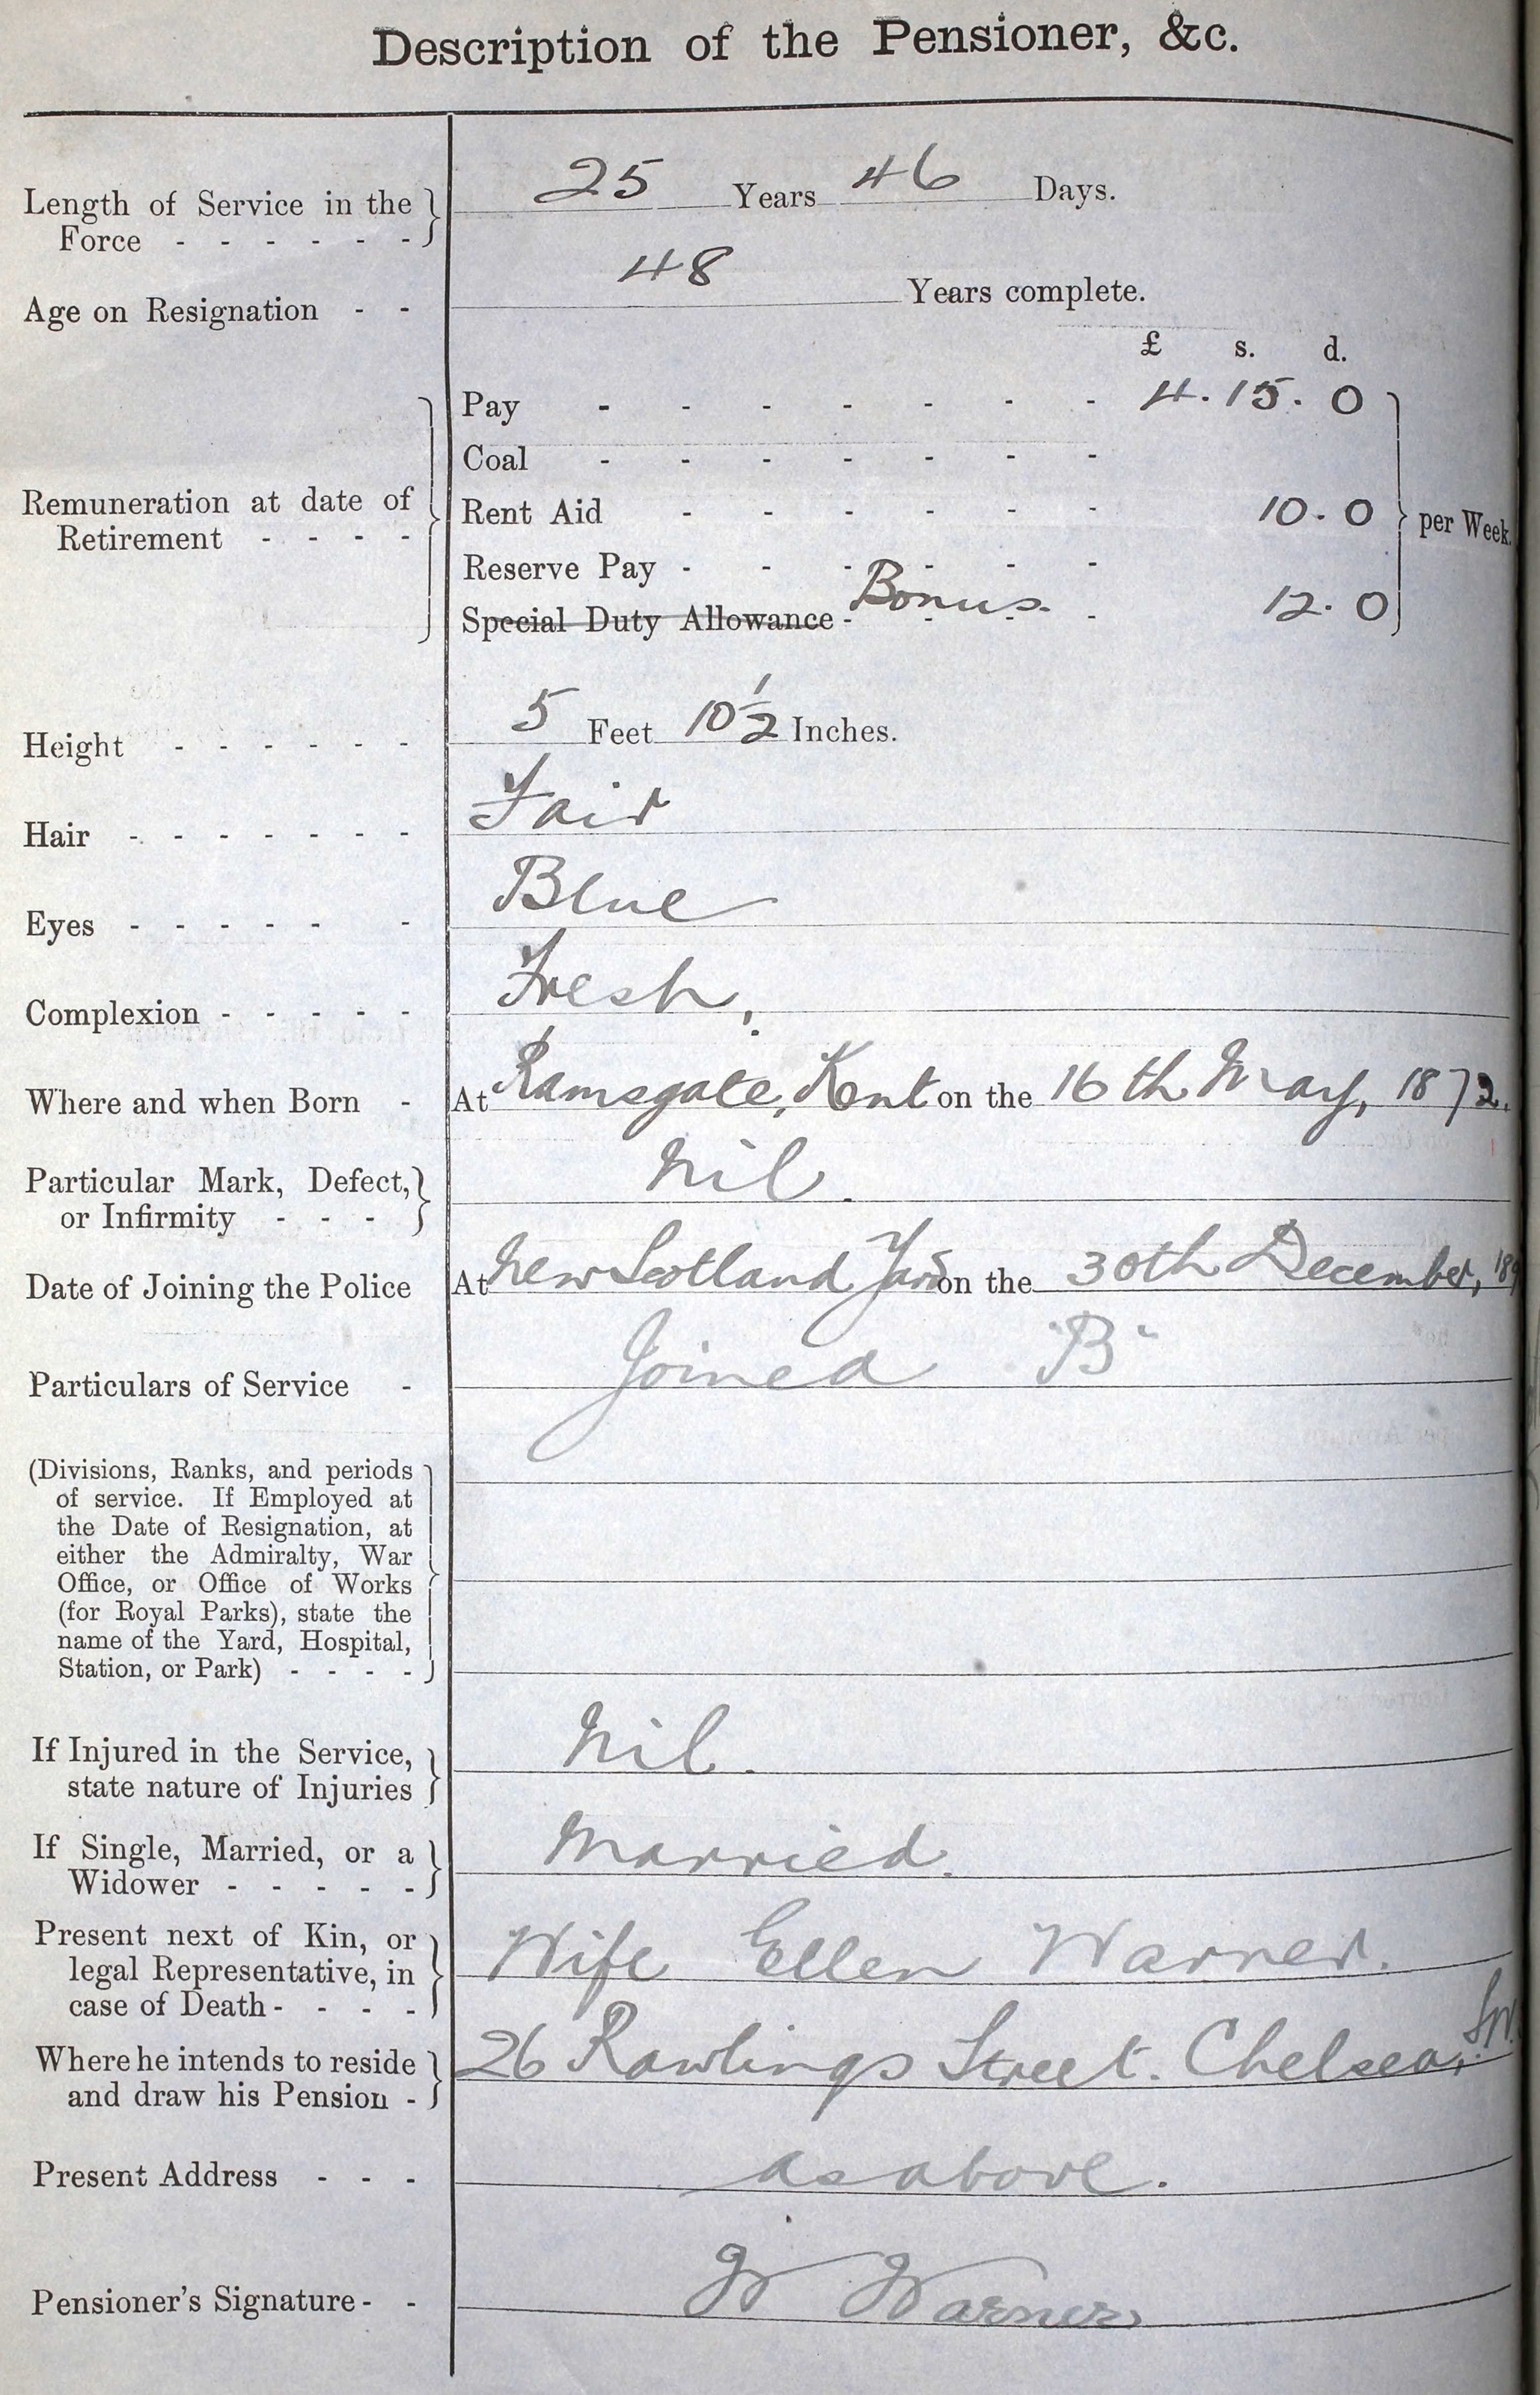 Description of the Pensioner, &c.
Length of Service in the Force - - - - - - 25 Years 46 Days.
Age on Resignation - - 48 Years complete.
£ s. d.
Remuneration at date of Retirement - - - -
Pay - - - - - - - 4. 15. 0
Coal - - - - - - -
Rent Aid - - - - - - 10. 0 per Week.
Reserve Pay - - - - - -
Special Duty Allowance - Bonus. - - - 12. 0
Height - - - - - - 5 Feet 10½ Inches.
Hair - - - - - - - Fair
Eyes - - - - - - Blue
Complexion - - - - - Fresh.
Where and when Born - At Ramsgate, Kent on the 16th May, 1872.
Particular Mark, Defect, or Infirmity - - - Nil.
Date of Joining the Police At New Scotland Yard on the 30th December, 189
Particulars of Service - Joined "B"
(Divisions, Ranks, and periods
of service. If Employed at
the Date of Resignation, at
either the Admiralty, War
Office, or Office of Works
(for Royal Parks), state the
name of the Yard, Hospital,
Station, or Park) - - - -
If Injured in the Service, state nature of Injuries Nil.
If Single, Married, or a Widower - - - - - Married.
Present next of Kin, or legal Representative, in case of Death - - - - Wife Ellen Warner.
Where he intends to reside and draw his Pension - 26 Rawlings Street. Chelsea, S.W.
Present Address - - - as above.
Pensioner's Signature - - W Warner